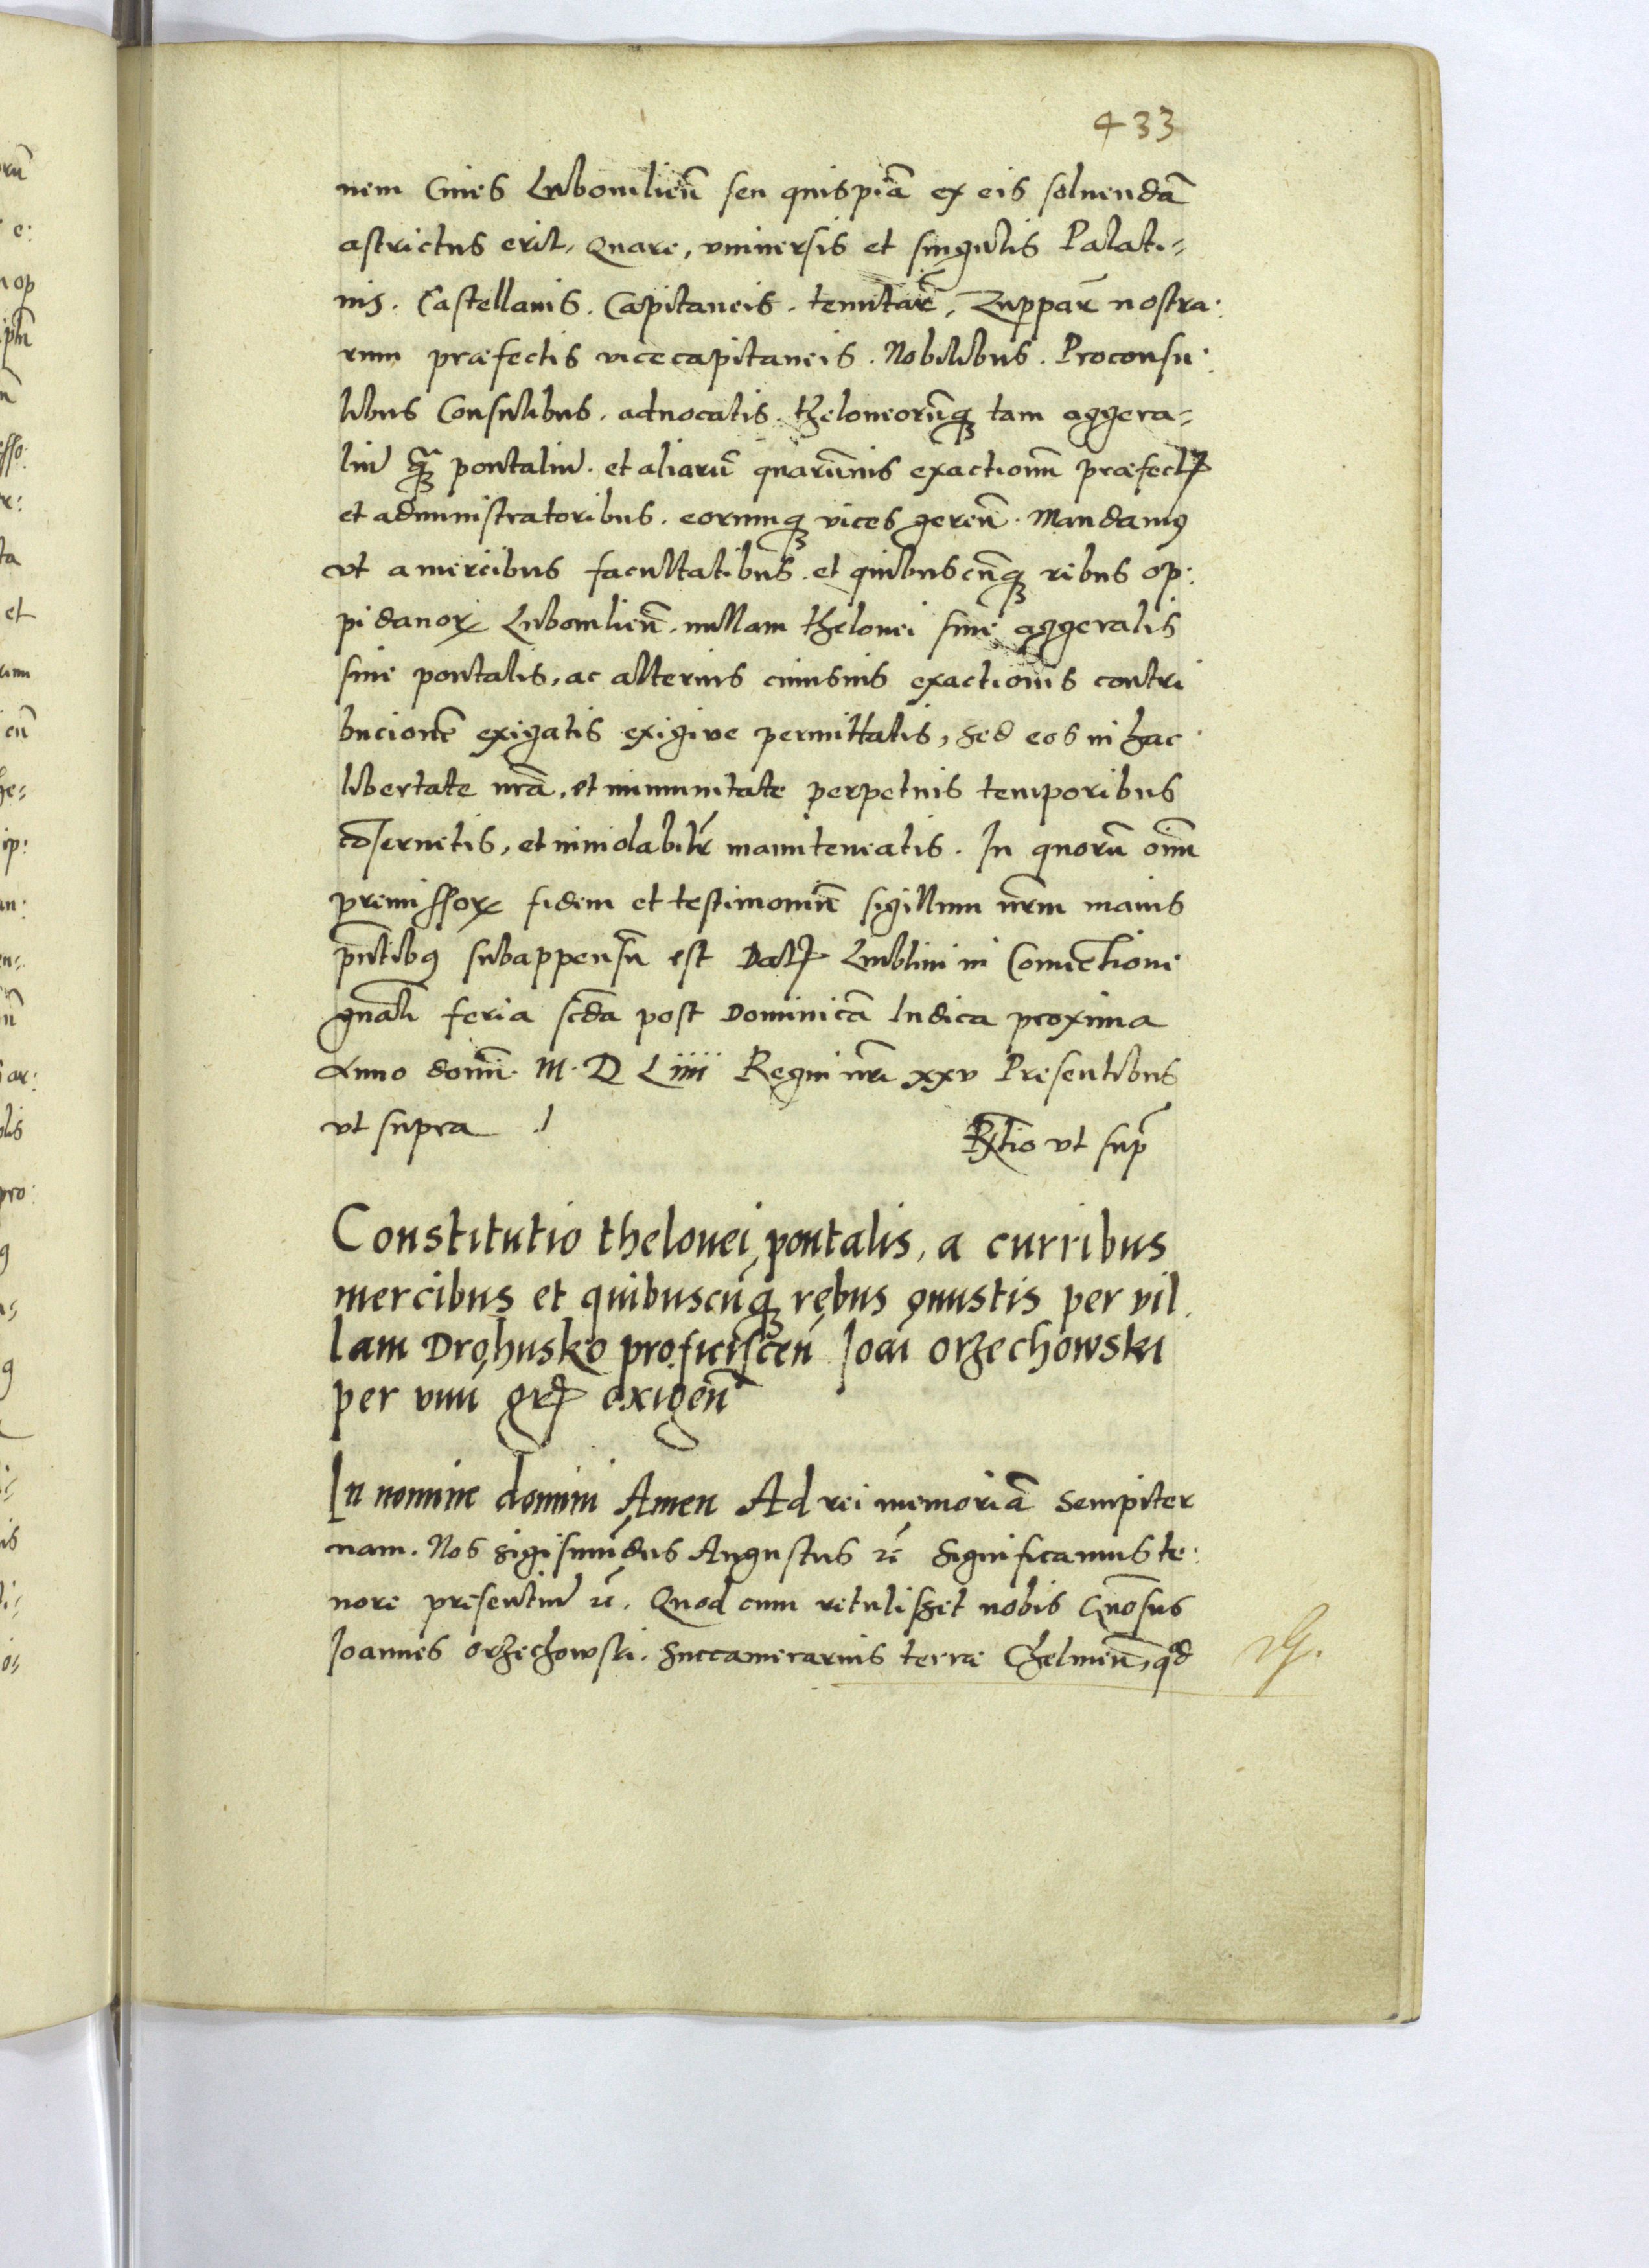 433
nem Ciues Lubomlien̄ seu quispiā ex eis soluendā
astrictus erit. Quare, vniuersis et singulis Palati=
nis. Castellanis. Capitaneis. tenutar̄, Zuppar̄ nostra:
rum præfectis vicecapitaneis. Nobilibus. Proconsu:
libus Consulibus. aduocatis. theloneorūq₃ tam aggera=
liū q̄₃ pontaliū. et aliarū quarūuis exactionum præfectꝭ
et administratoribus. eorumq₃ vices geren̄. Mandamꝰ
vt a mercibus facultatibus. et quibuscūq₃ rebus op:
pidanoꝝ Lubomlien̄. nullam thelonei siue aggeralis
siue pontalis, ac alterius cuiusuis exactionis contri
bucionē exigatis exigiue permittatis, Sed eos in hac
libertate nr̄a, et immunitate perpetuis temporibus
cōseruetis, et inuiolabilr̄ manuteneatis. In quorū oīm
premissoꝝ fidem et testimoniū sigillum nr̄m maius
pn̄tibꝰ subappensū est Datꝭ Lublini in Conuentione
gn̄ali feria scd̄a post Dominicā Iudica proxima
Anno domī. M. D Liiii Regni nr̄i xxv Presentibus
vt supra
Rl̄tio vt sup̄
Constitutio thelonei pontalis, a curribus
mercibus et quibuscūq₃ rebus onustis per vil
lam Drohusko proficiscen̄ Ioāi Orzechowski
per vnū grꝭ exigen̄
In nomine domini Amen Ad rei memoriā Sempiter
nam. Nos Sigismūdus Augustus ꝛc̄ Significamus te:
nore presentiū ꝛc̄. Quod cum retulisset nobis Gn̄osus
Ioannes Orzechowski. Succamerarius terræ Chelmen̄, qd